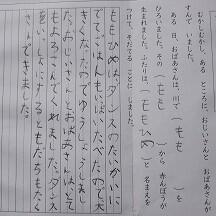 むかしむかし、ある ところに、おじいさんと おばあさんが
すんで いました。
ある 日、おばあさんは、川で（もも）を
ひろいました。その（もも）から 赤んぼうが
生まれました。ふたりは、（ももひめ）と 名まえを
つけて そだてる ことに しました。
ももひめは、ダンスのたいかいに
でて、
きくなったのでゆうしょうしまし
た。おじいさんとおばあさんはとて
もよろこんでくれました。ダンス
をいっしょにするともだちもたく
さんできました。